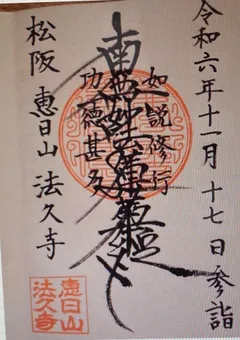 令和六年十一月十七日参詣
如説修行
南無妙法蓮華経
功徳甚多
松阪 恵日山 法久寺
恵日山
法久寺